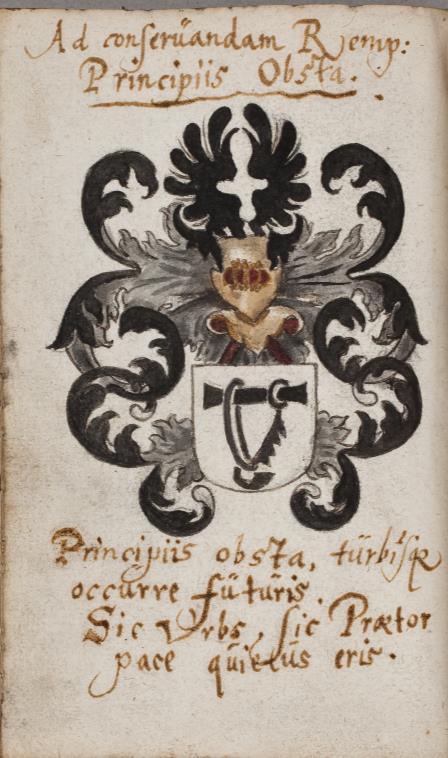 Ad conserüandam Remp:
Principiis Obsta.
Principiis obsta, türbisq́
occurre fütüris.
Sic Vrbs, sic Prætor
pace quietus eris.